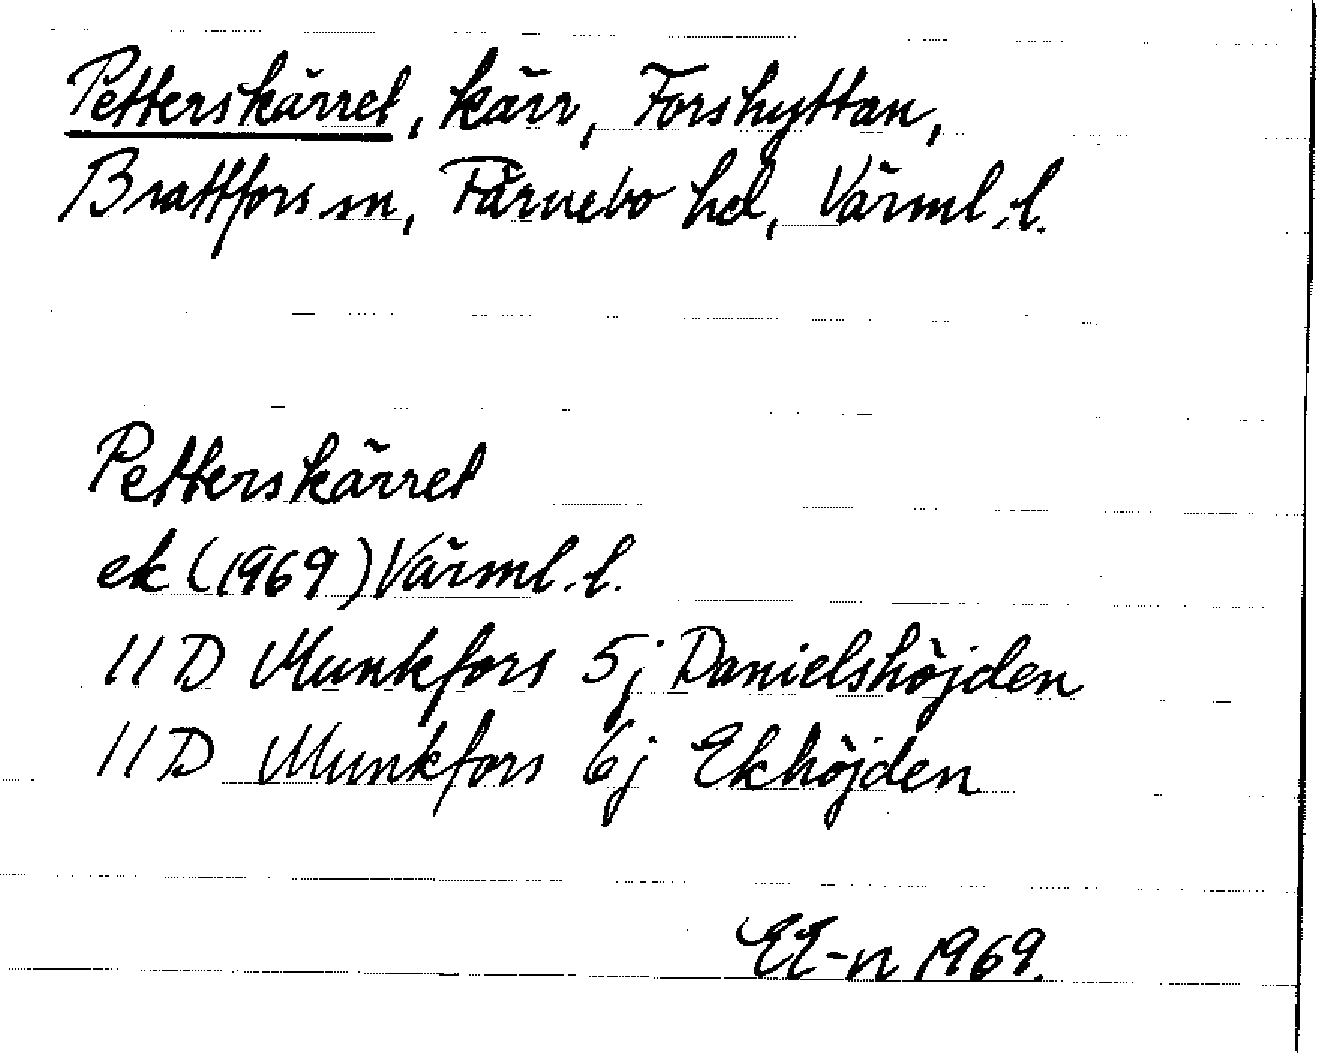 Petterskärret, kärr, Forshyttan,
Brattfors sn, Färnebo hd, Värml. l.
Petterskärret
ek (1969) Värml. l.
11 D Munkfors 5j Danielshöjden
11 D Munkfors 6j Ekhöjden
EE-n 1969.